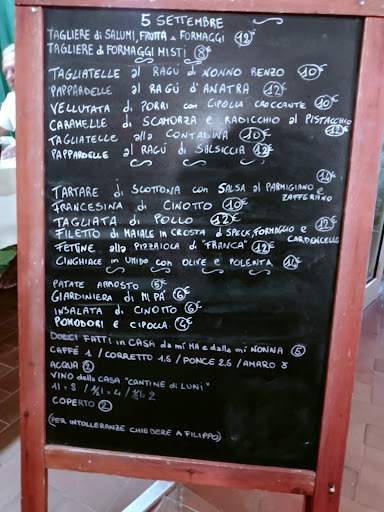 5 SETTEMBRE
TAGLIERE di SALUMI, FRUTTA e FORMAGGI 12€
TAGLIERE di FORMAGGI MISTI 8€
TAGLIATELLE al RAGÙ di NONNO RENZO 10€
PAPPARDELLE al RAGÙ d'ANATRA 12€
VELLUTATA di PORRI con CIPOLLA CROCCANTE 10€
CARAMELLE di SCAMORZA e RADICCHIO al PISTACCHIO 12€
TAGLIATELLE alla CONTADINA 10€
PAPPARDELLE al RAGÙ di SALSICCIA 12€
TARTARE di SCOTTONA con SALSA al PARMIGIANO e ZAFFERANO 14€
FRANCESINA di CINOTTO 10€
TAGLIATA di POLLO 12€
FILETTO di MAIALE in CROSTA di SPECK, FORMAGGIO e CARDONCELLO 12€
FETTINE alla PIZZAIOLA di "FRANCA" 12€
CINGHIALE in UMIDO con OLIVE e POLENTA 14€
PATATE ARROSTO 5€
GIARDINIERA di MI PA' 6€
INSALATA di CINOTTO 6€
POMODORI e CIPOLLA 4€
DOLCI FATTI in CASA da mi' MA e dalla mi NONNA 5
CAFFÈ 1 / CORRETTO 1.5 / PONCE 2.5 / AMARO 3
ACQUA 2
VINO della CASA "CANTINE di LUNI"
1l = 8 / ½l = 4 / ¼l = 2
COPERTO 2
(PER INTOLLERANZE CHIEDERE A FILIPPO)